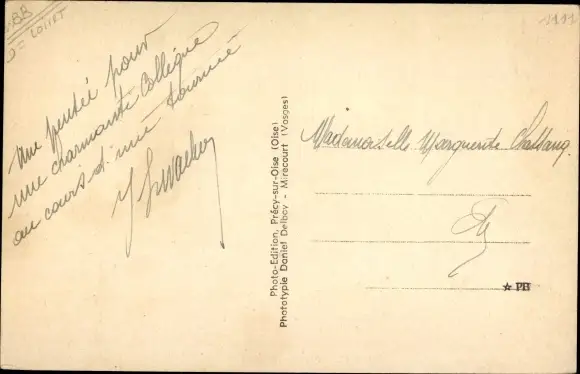 LOIRET
Une pensée pour
une charmante Collègue
au cours d'une tournée
Mademoiselle Marguerite
Photo-Edition, Précy-sur-Oise (Oise)
Phototypie Daniel Delboy - Mirecourt (Vosges)
☆ PB